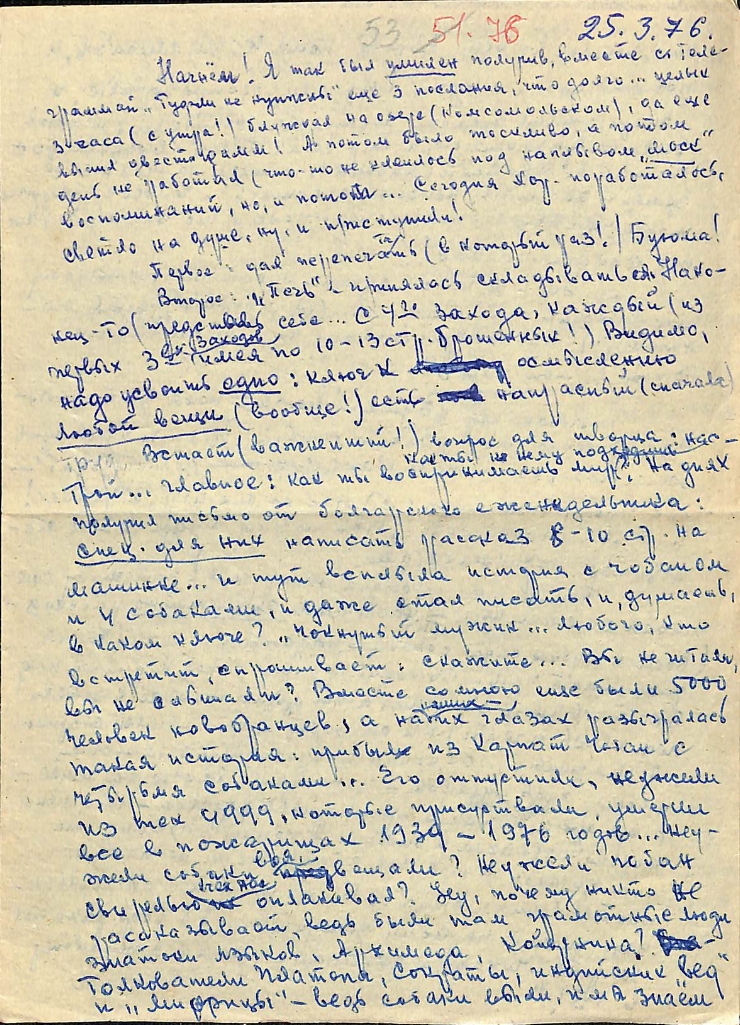 53 51.76 25.3.76.
Начнём! Я так был умилен получив, вместе с теле-
граммой „Гудули не нужны" еще 3 послания, что долго... целых
3 часа (с утра!) блуждал на озере (Комсомольском), да еще
день не работал (что-то не клеилось под наплывом „моск"
воспоминаний, но, и потом... Сегодня хор. поработалось,
светло на душе, ну, и приступили!
Первое: дал перепечатать (в который раз!) Бугома!
Второе: „Печь" – принялось складываться. Нако-
нец-то (представь себе... с 4го захода, каждый (из
первых 3х заходов имел по 10-13 стр. брошенных!) Видимо,
надо усвоить одно: ключ к осмыслению
любой вещи (вообще!) есть напрасный (сначала)
труд. Встает (важнейший!) вопрос для творца: нас-
трой... главное: как ты к нему подходишь как ты воспринимаешь мир? На днях
получил письмо от болгарского еженедельника:
спец. для них написать рассказ 8-10 стр. на
машинке... и тут всплыла история с чабаном
и 4 собаками, и даже стал писать, и, думаешь,
в каком ключе? „Чокнутый мужик... любого, кто
встретит, спрашивает: скажите... Вы не читали,
вы не слышали? Вместе со мною еще были 5000
человек новобранцев, а на наших глазах разыгралась
такая история: прибыл из Карпат чабан с
четырьмя собаками... Его отпустили, неужели
из тех 4999, которые присутствовали, умерли
все в пожарищах 1939 – 1976 годов... Неу-
жели собаки воя, предвещали? Неужели чабан
свирелью оплакивал? Ну, почему никто не
рассказывает, ведь были там грамотные люди
знатоки языков, Архимеда, Коперника?
Толкователи Платона, Сократы, индийских „Вед"
и – ведь собаки выли, и мы знаем